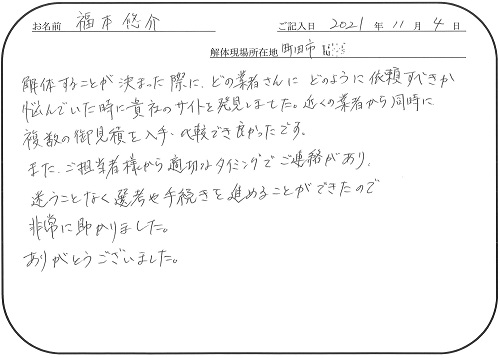 お名前 福本 悠介 ご記入日 2021 年 11 月 4 日
解体現場所在地 町田市
解体することが決まった際に、どの業者さんに どのように依頼すべきか
悩んでいた時に貴社のサイトを発見しました。近くの業者から同時に
複数の御見積を入手、比較でき良かったです。
また、ご担当者様から適切なタイミングでご連絡があり、
迷うことなく選考や手続きを進めることができたので
非常に助かりました。
ありがとうございました。